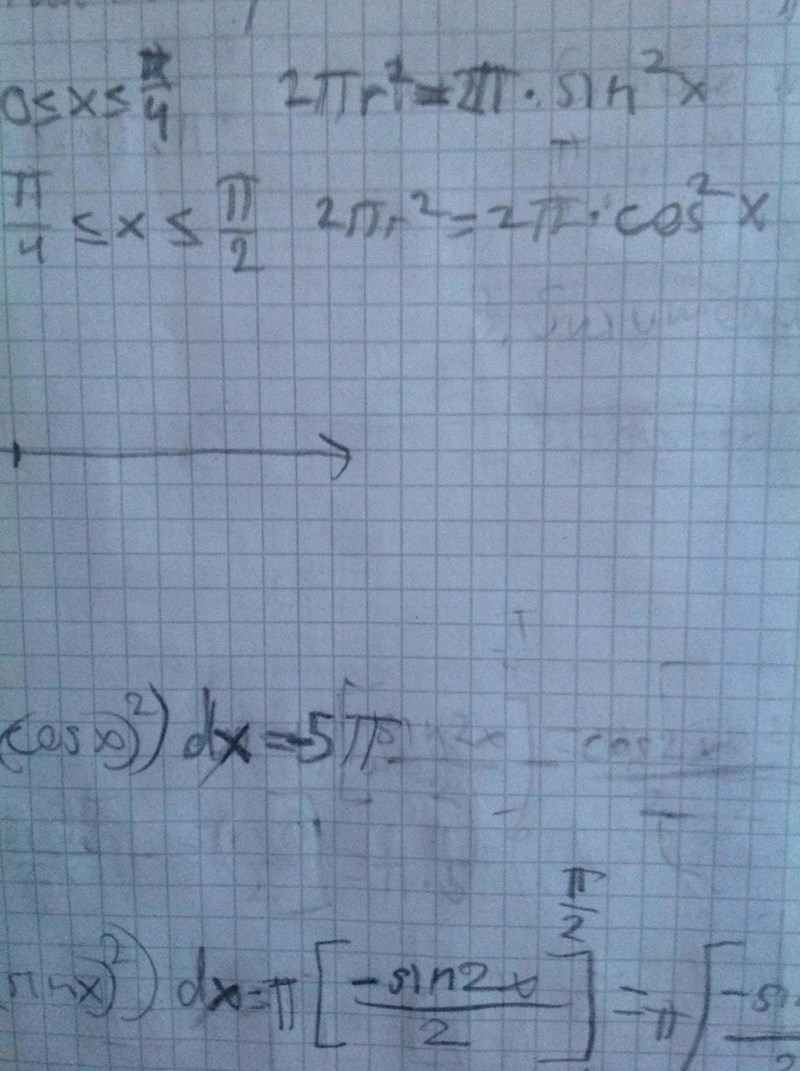 0 ≤ x ≤ π/4 2πr² = 2π · sin² x
π/4 ≤ x ≤ π/2 2πr² = 2π · cos² x
(cos x)²) dx = 5π
sin x)²) dx = π [ -sin2x / 2 ] π/2 = π [ -si